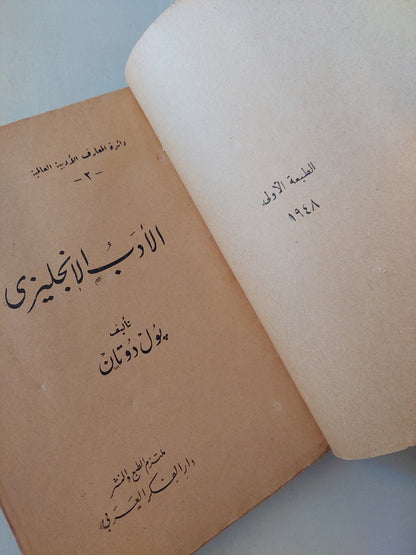 دائرة المعارف الأدبية العالمية
-٢-
الأدبُ الإنجليزى
تأليف
پول دوتان
ملتزم الطبع والنشر
دار الفكر العربى
الطبعة الأولى
١٩٤٨